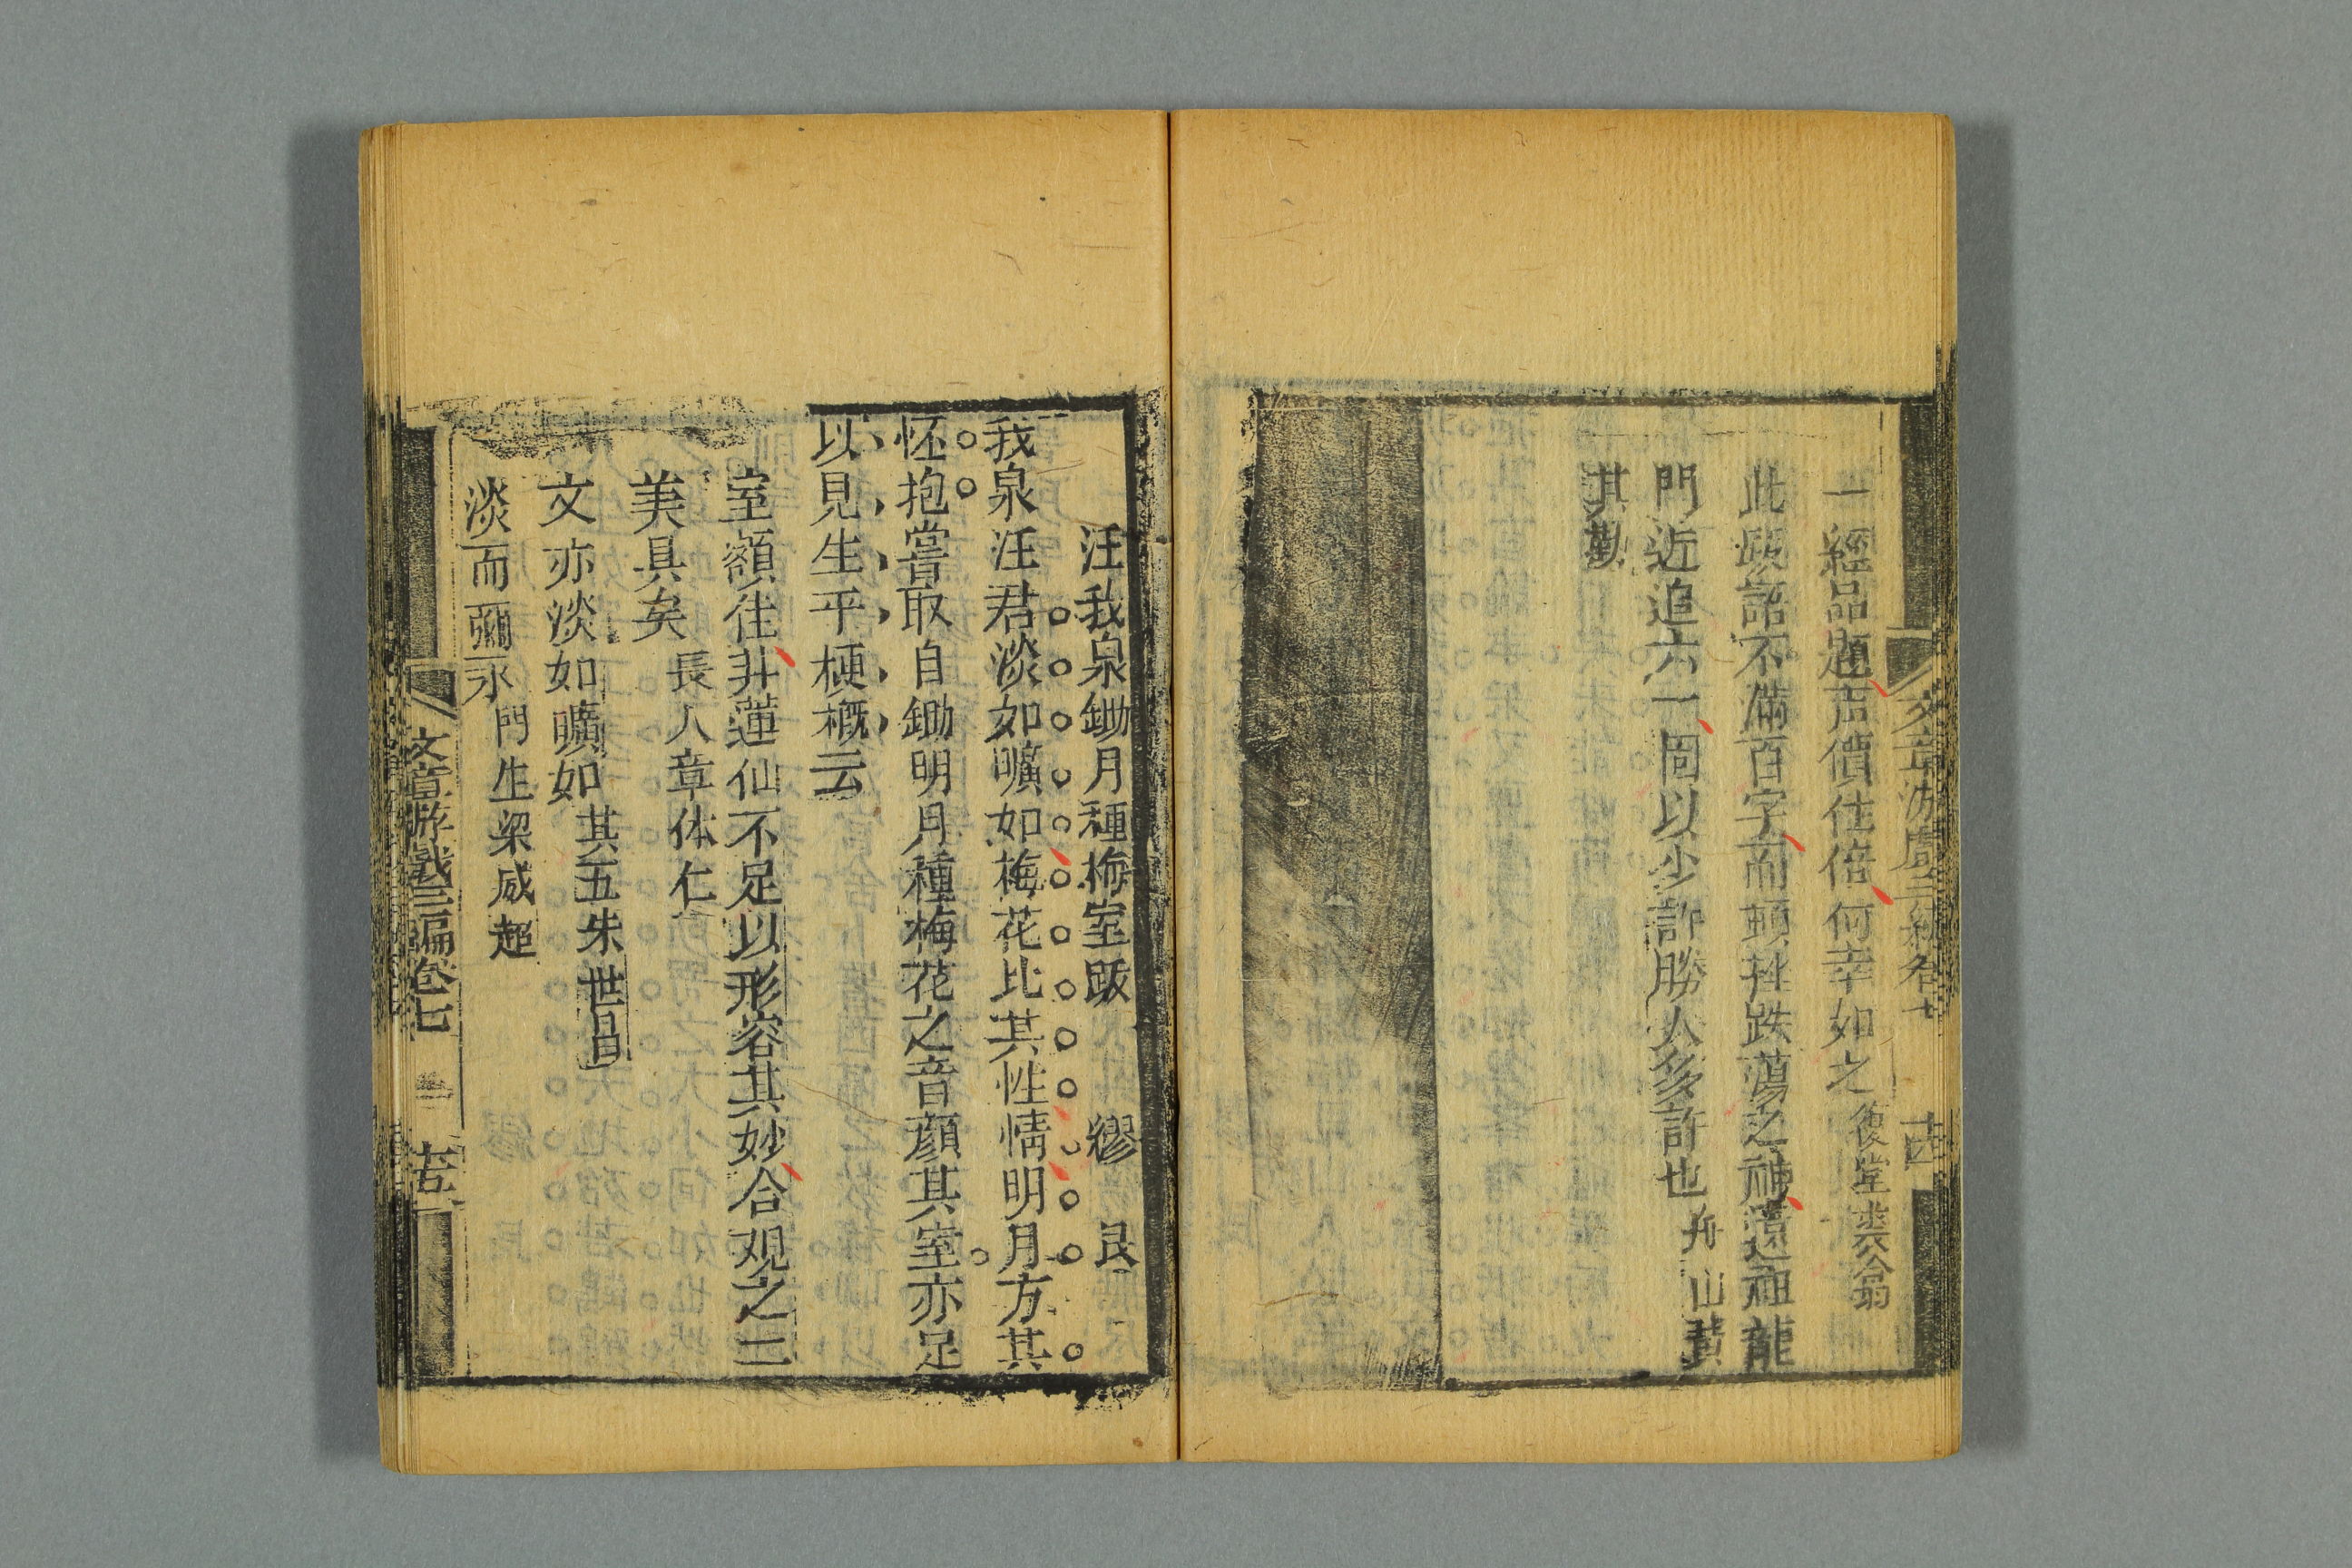 一經品題声價住倍何幸如之復堂裘命翁
此跋語不滿百字而頓挫跌蕩之神遠祖龍
門近追六一固以少許勝人多許也舟山黄
其勤
汪我泉鋤月種梅室跋 繆艮
我泉汪君淡如曠如梅花比其性情明月方其
怀抱嘗取自鋤明月種梅花之音顔其室亦足
以見生平梗概云
室額往井蓮仙不足以形容其妙合观之二
美具矣長人章体仁
文亦淡如曠如其五朱世昌
淡而彌永門生梁威超
文章游戲三編卷七